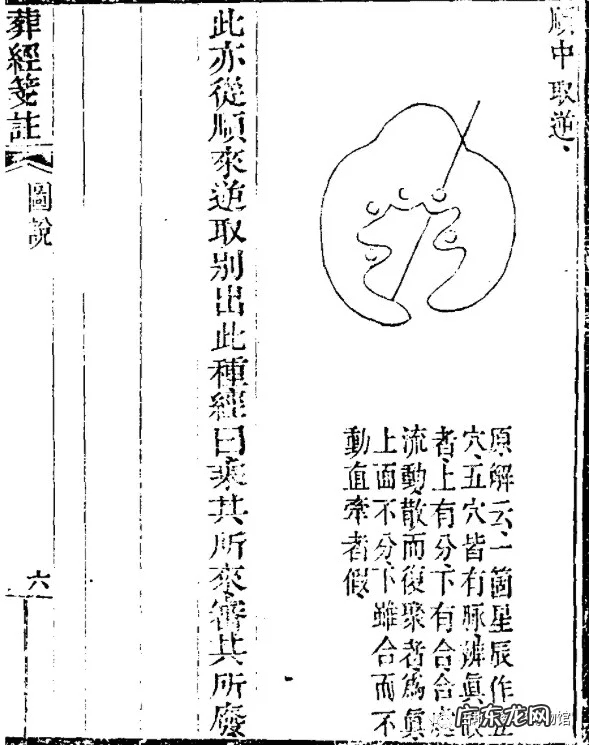 順中取逆、
原解云、一箇星辰作五
穴、五穴皆有脉、辨眞
者、上有分、下有合、合
流動、散而復聚者爲眞
上面不分、下雖合而不
動直牽者假、
此亦從順來逆取別出此種經曰乘其所來審其所廢
葬經箋註
圖說
六
广东龙网